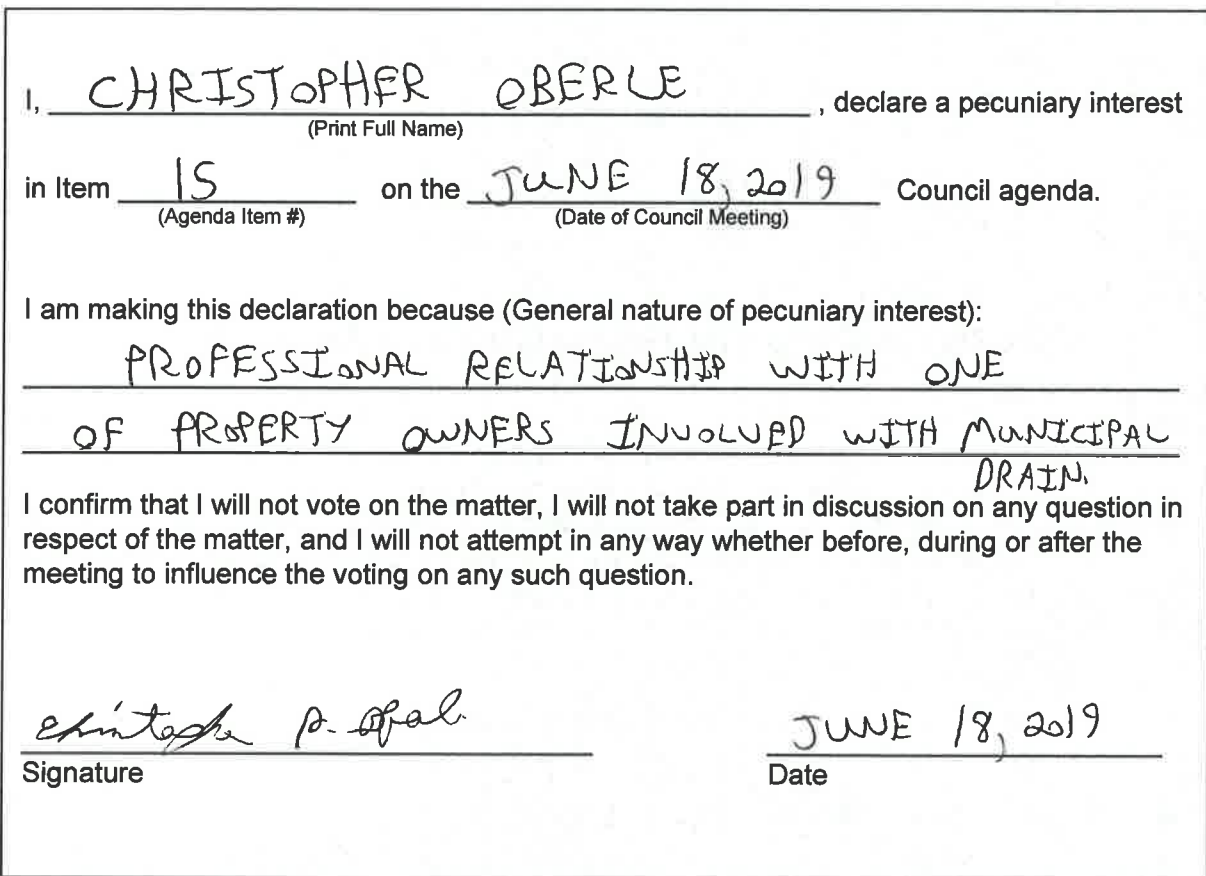 I, CHRISTOPHER OBERLE, declare a pecuniary interest
(Print Full Name)
in Item 15 on the JUNE 18, 2019 Council agenda.
(Agenda Item #) (Date of Council Meeting)
I am making this declaration because (General nature of pecuniary interest):
PROFESSIONAL RELATIONSHIP WITH ONE
OF PROPERTY OWNERS INVOLVED WITH MUNICIPAL
DRAIN.
I confirm that I will not vote on the matter, I will not take part in discussion on any question in
respect of the matter, and I will not attempt in any way whether before, during or after the
meeting to influence the voting on any such question.
JUNE 18, 2019
Signature Date